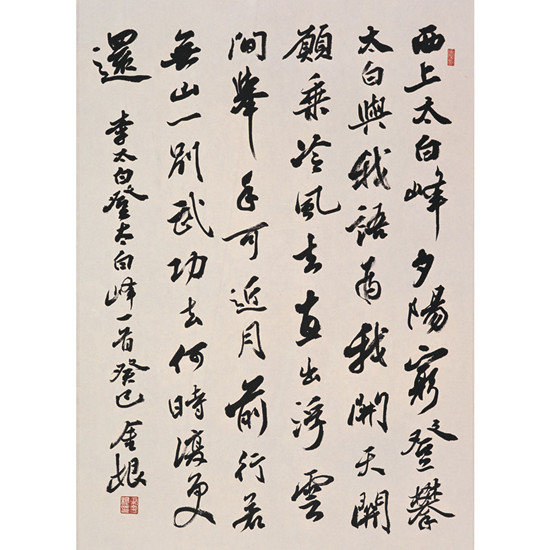 西上太白峰夕陽窮登攀
太白與我語為我開天關
願乘冷風去直出浮雲
間舉手可近月前行若
無山一別武功去何時復更
還
李太白登太白峰一首癸巳